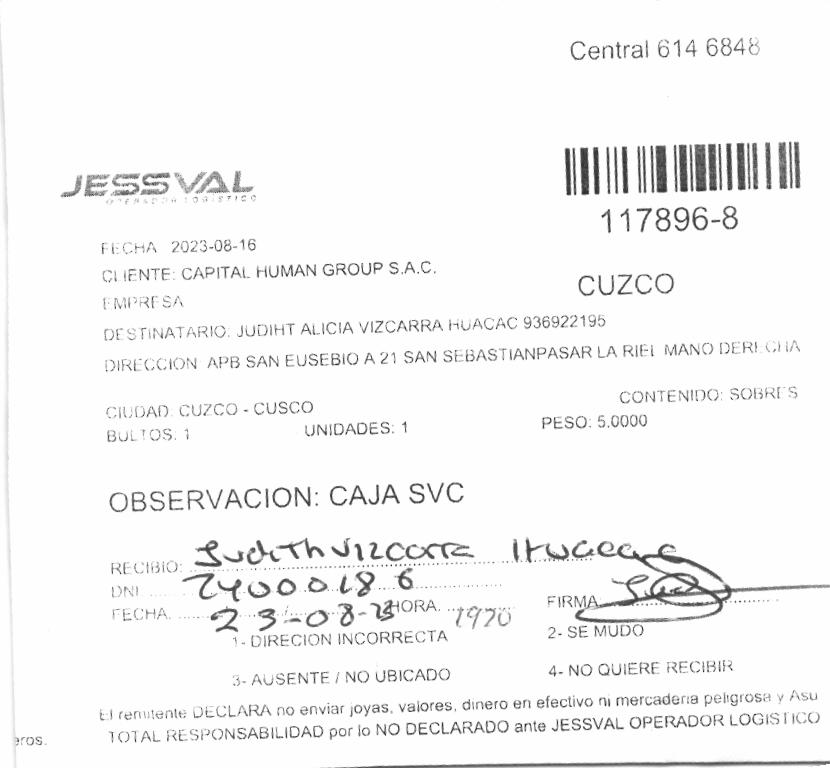 Central 614 6848
JESSVAL
OPERADOR LOGISTICO
117896-8
FECHA 2023-08-16
CLIENTE: CAPITAL HUMAN GROUP S.A.C.
CUZCO
EMPRESA
DESTINATARIO: JUDIHT ALICIA VIZCARRA HUACAC 936922195
DIRECCION: APB SAN EUSEBIO A 21 SAN SEBASTIANPASAR LA RIEL MANO DERECHA
CIUDAD: CUZCO - CUSCO
CONTENIDO: SOBRES
BULTOS: 1 UNIDADES: 1 PESO: 5.0000
OBSERVACION: CAJA SVC
RECIBIO: Judith Vizcarra
DNI 24000186
FECHA 23-08-23 HORA
FIRMA
1- DIRECION INCORRECTA 2- SE MUDO
3- AUSENTE / NO UBICADO 4- NO QUIERE RECIBIR
El remitente DECLARA no enviar joyas, valores, dinero en efectivo ni mercaderia peligrosa y Asu
TOTAL RESPONSABILIDAD por lo NO DECLARADO ante JESSVAL OPERADOR LOGISTICO
eros.